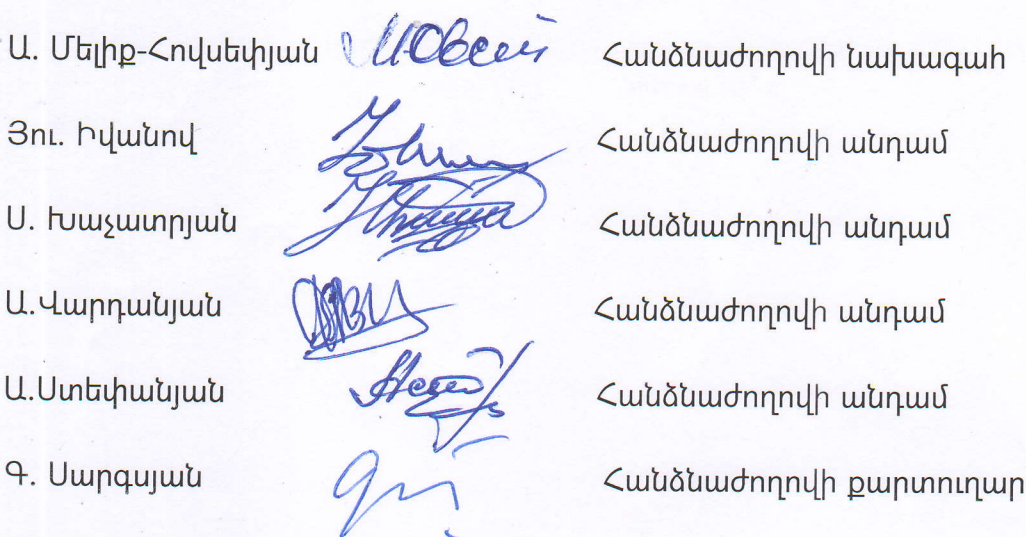 Ա. Մելիք-Հովսեփյան Հանձնաժողովի նախագահ
Յու. Իվանով Հանձնաժողովի անդամ
Ս. Խաչատրյան Հանձնաժողովի անդամ
Ա.Վարդանյան Հանձնաժողովի անդամ
Ա.Ստեփանյան Հանձնաժողովի անդամ
Գ. Սարգսյան Հանձնաժողովի քարտուղար